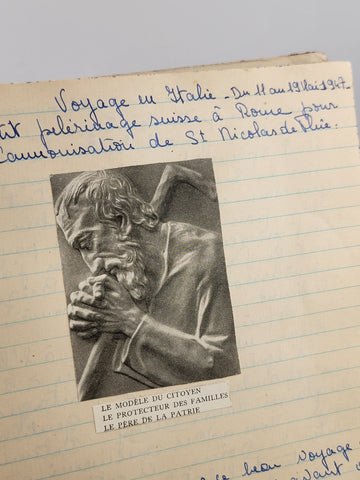 Voyage en Italie - Du 11 au 19 Mai 1947-
tit pelèrinage suisse à Rome pour
canonisation de St Nicolas de Flüe.
LE MODÈLE DU CITOYEN
LE PROTECTEUR DES FAMILLES
LE PÈRE DE LA PATRIE
beau voyage
avant